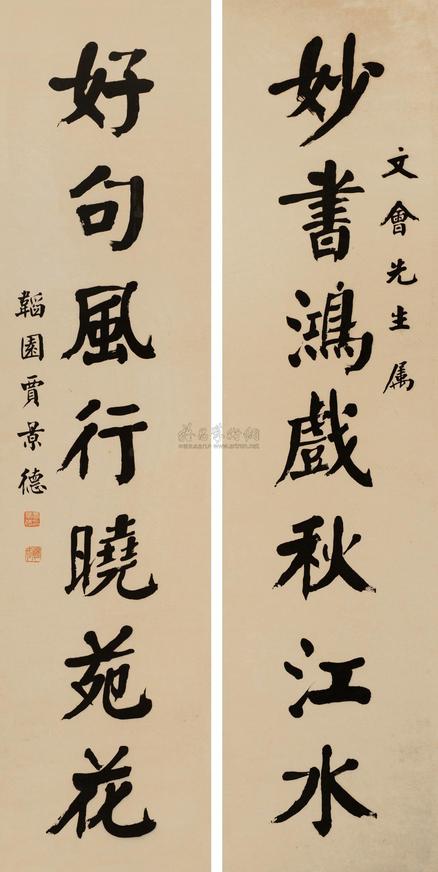 文會先生属
妙書鴻戲秋江水
好句風行曉苑花
韜園賈景德
www.artron.net